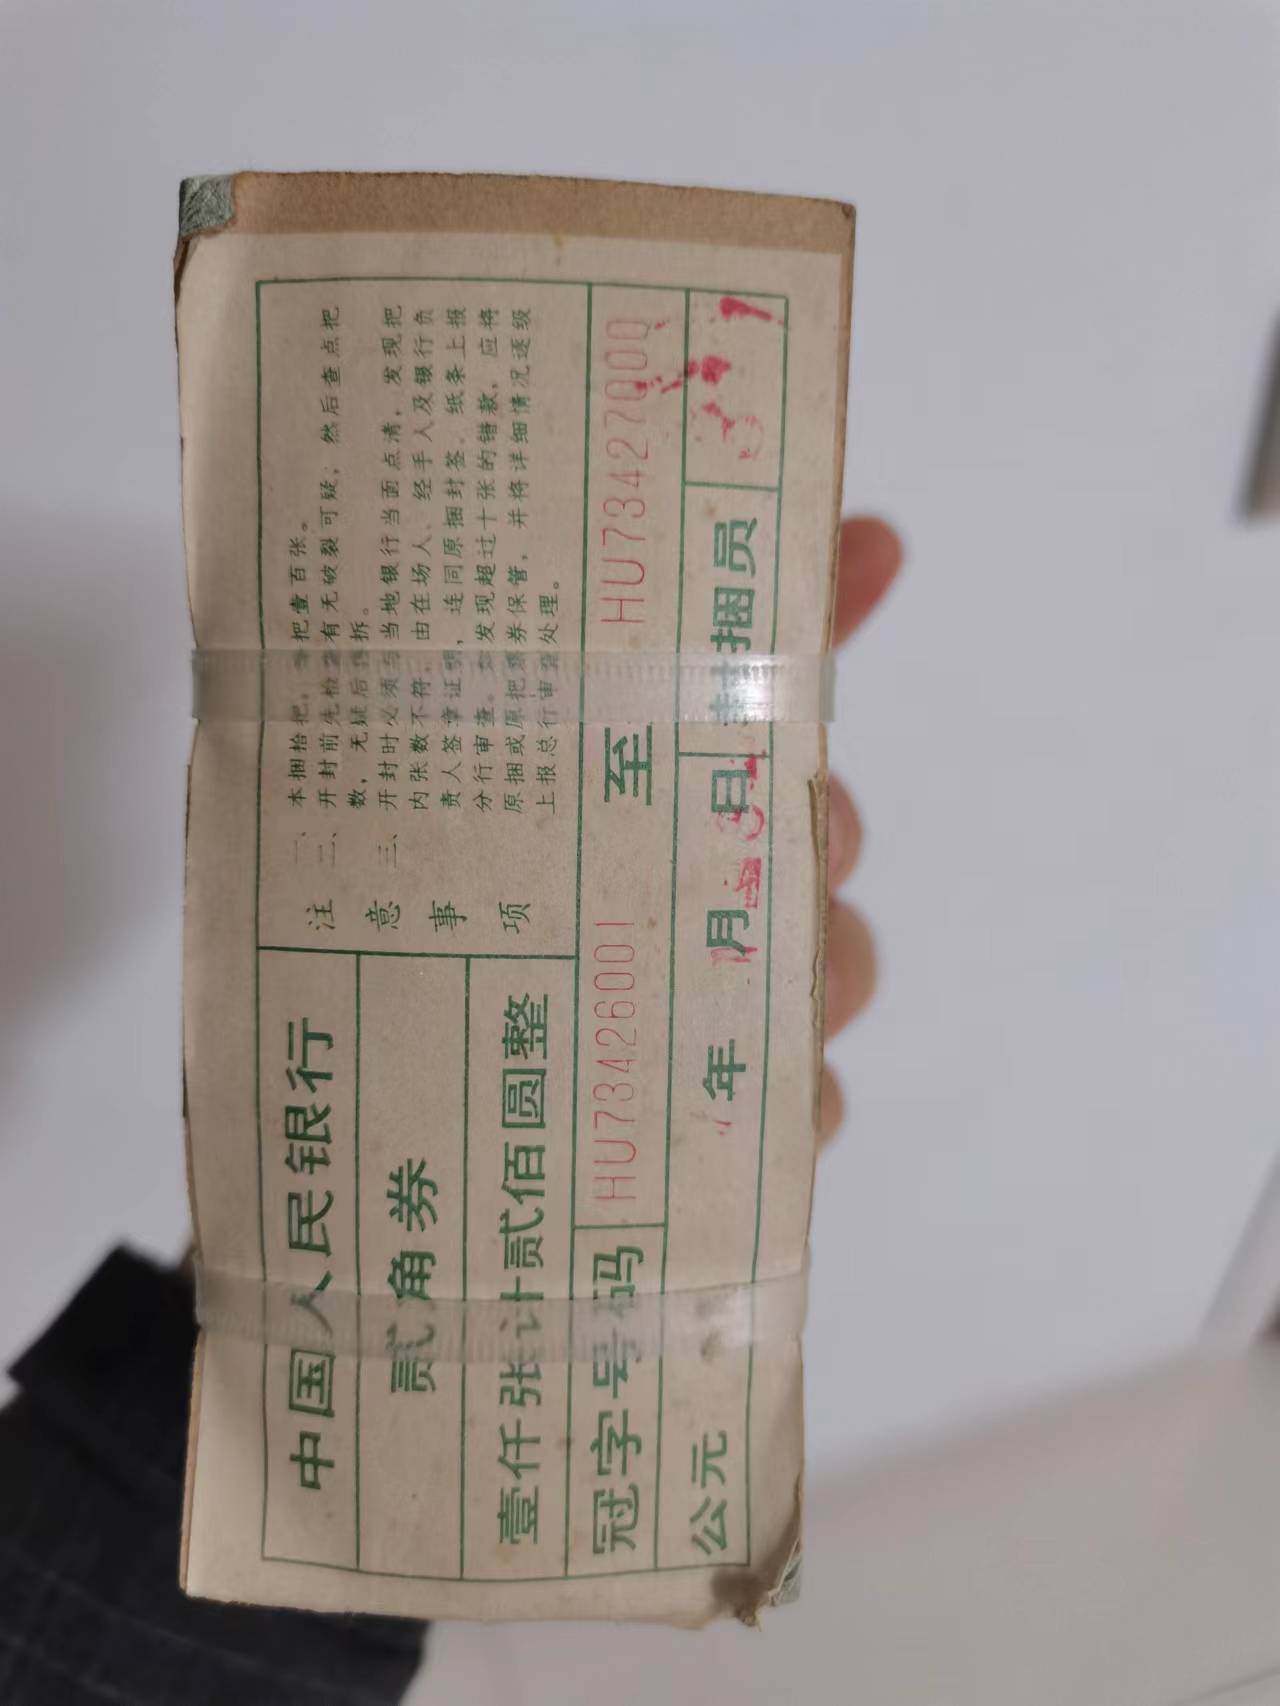 中国人民银行
贰角券
壹仟张计贰佰圆整
注意事项
一、本捆拾把，每把壹百张。
二、开封前先检查有无破裂可疑，然后查点把
数，无疑后再拆。
三、开封时必须与当地银行当面点清，发现把
内张数不符，由在场人、经手人及银行负
责人签章证明，连同原捆封签、纸条上报
分行审查。如发现超过十张的错款，应将
原捆或原把票券保管，并将详细情况逐级
上报总行审查处理。
冠字号码 HU73426001 至 HU73427000
公元 年 月 日 封捆员